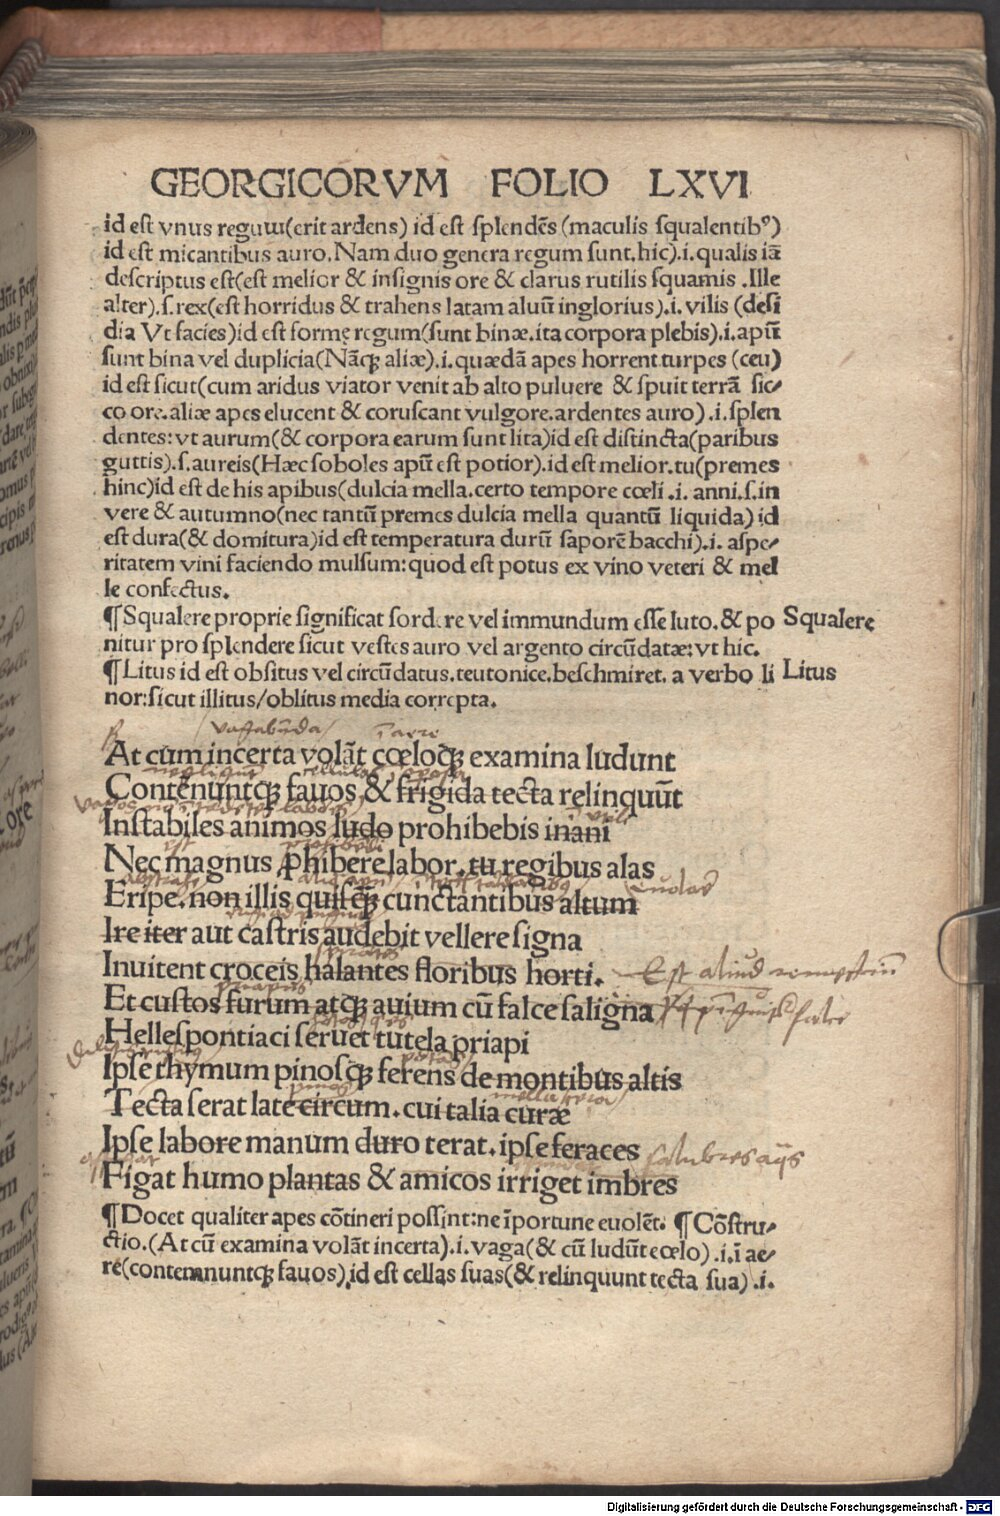 GEORGICORVM FOLIO LXVI
id est vnus regum(erit ardens) id est splendēs (maculis squalentibꝰ)
id est micantibus auro. Nam duo genera regum sunt. hic).i. qualis iā
descriptus est(est melior & insignis ore & clarus rutilis squamis. Ille
alter).s. rex(est horridus & trahens latam aluū inglorius).i. vilis (desi
dia Vt facies)id est formę regum(sunt binæ. ita corpora plebis).i. apū
sunt bina vel duplicia(Nāqꝫ aliæ).i. quædā apes horrent turpes (ceu)
id est sicut(cum aridus viator venit ab alto puluere & spuit terrā sic⸗
co ore. aliæ apes elucent & coruscant vulgore. ardentes auro).i. splen
dentes: vt aurum(& corpora earum sunt lita)id est distincta(paribus
guttis).s. aureis(Hæc soboles apū est potior).id est melior. tu(premes
hinc)id est de his apibus(dulcia mella. certo tempore cœli .i. anni. s. in
vere & autumno(nec tantū premes dulcia mella quantū liquida) id
est dura(& domitura)id est temperatura durū saporē bacchi).i. aspe⸗
ritatem vini faciendo mulsum: quod est potus ex vino veteri & mel
le confectus.
¶Squalere proprie significat sordere vel immundum esse luto. & po Squalere
nitur pro splendere sicut vestes auro vel argento circūdatæ: vt hic.
¶Litus id est obsitus vel circūdatus. teutonice. beschmiret. a verbo li Litus
nor: sicut illitus/oblitus media correpta.
vagabūda ī aere
At cum incerta volāt cœloqꝫ examina ludunt
Contēnuntqꝫ fauos, & frigida tecta relinquūt
Instabiles animos ludo prohibebis inani
Nec magnus ꝓhibere labor. tu regibus alas
Eripe. non illis quisqꝫ cunctantibus altum
Ire iter aut castris audebit vellere signa
Inuitent croceis halantes floribus horti.
Et custos furum atqꝫ auium cū falce saligna
Hellespontiaci seruet tutela priapi
Ipse thymum pinosqꝫ ferens de montibus altis
Tecta serat late circum. cui talia curæ
Ipse labore manum duro terat. ipse feraces
Figat humo plantas & amicos irriget imbres
¶Docet qualiter apes cōtineri possint: ne īportune euolēt. ¶Cōstru⸗
ctio. (At cū examina volāt incerta).i. vaga(& cū ludūt cœlo) .i. ī ae⸗
re(contemnuntqꝫ fauos).id est cellas suas(& relinquunt tecta sua).i.
Digitalisierung gefördert durch die Deutsche Forschungsgemeinschaft - DFG